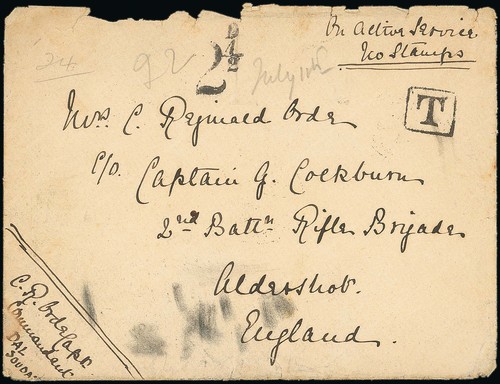 On Active Service
No Stamps
24
92
2½
July 10th
T
Mrs. C. Reginald Orde
C/o. Captain G. Cockburn
2nd Battn Rifle Brigade
Aldershot.
England.
C. R. Orde Capt.
Commandant
DAL
SOUDAN